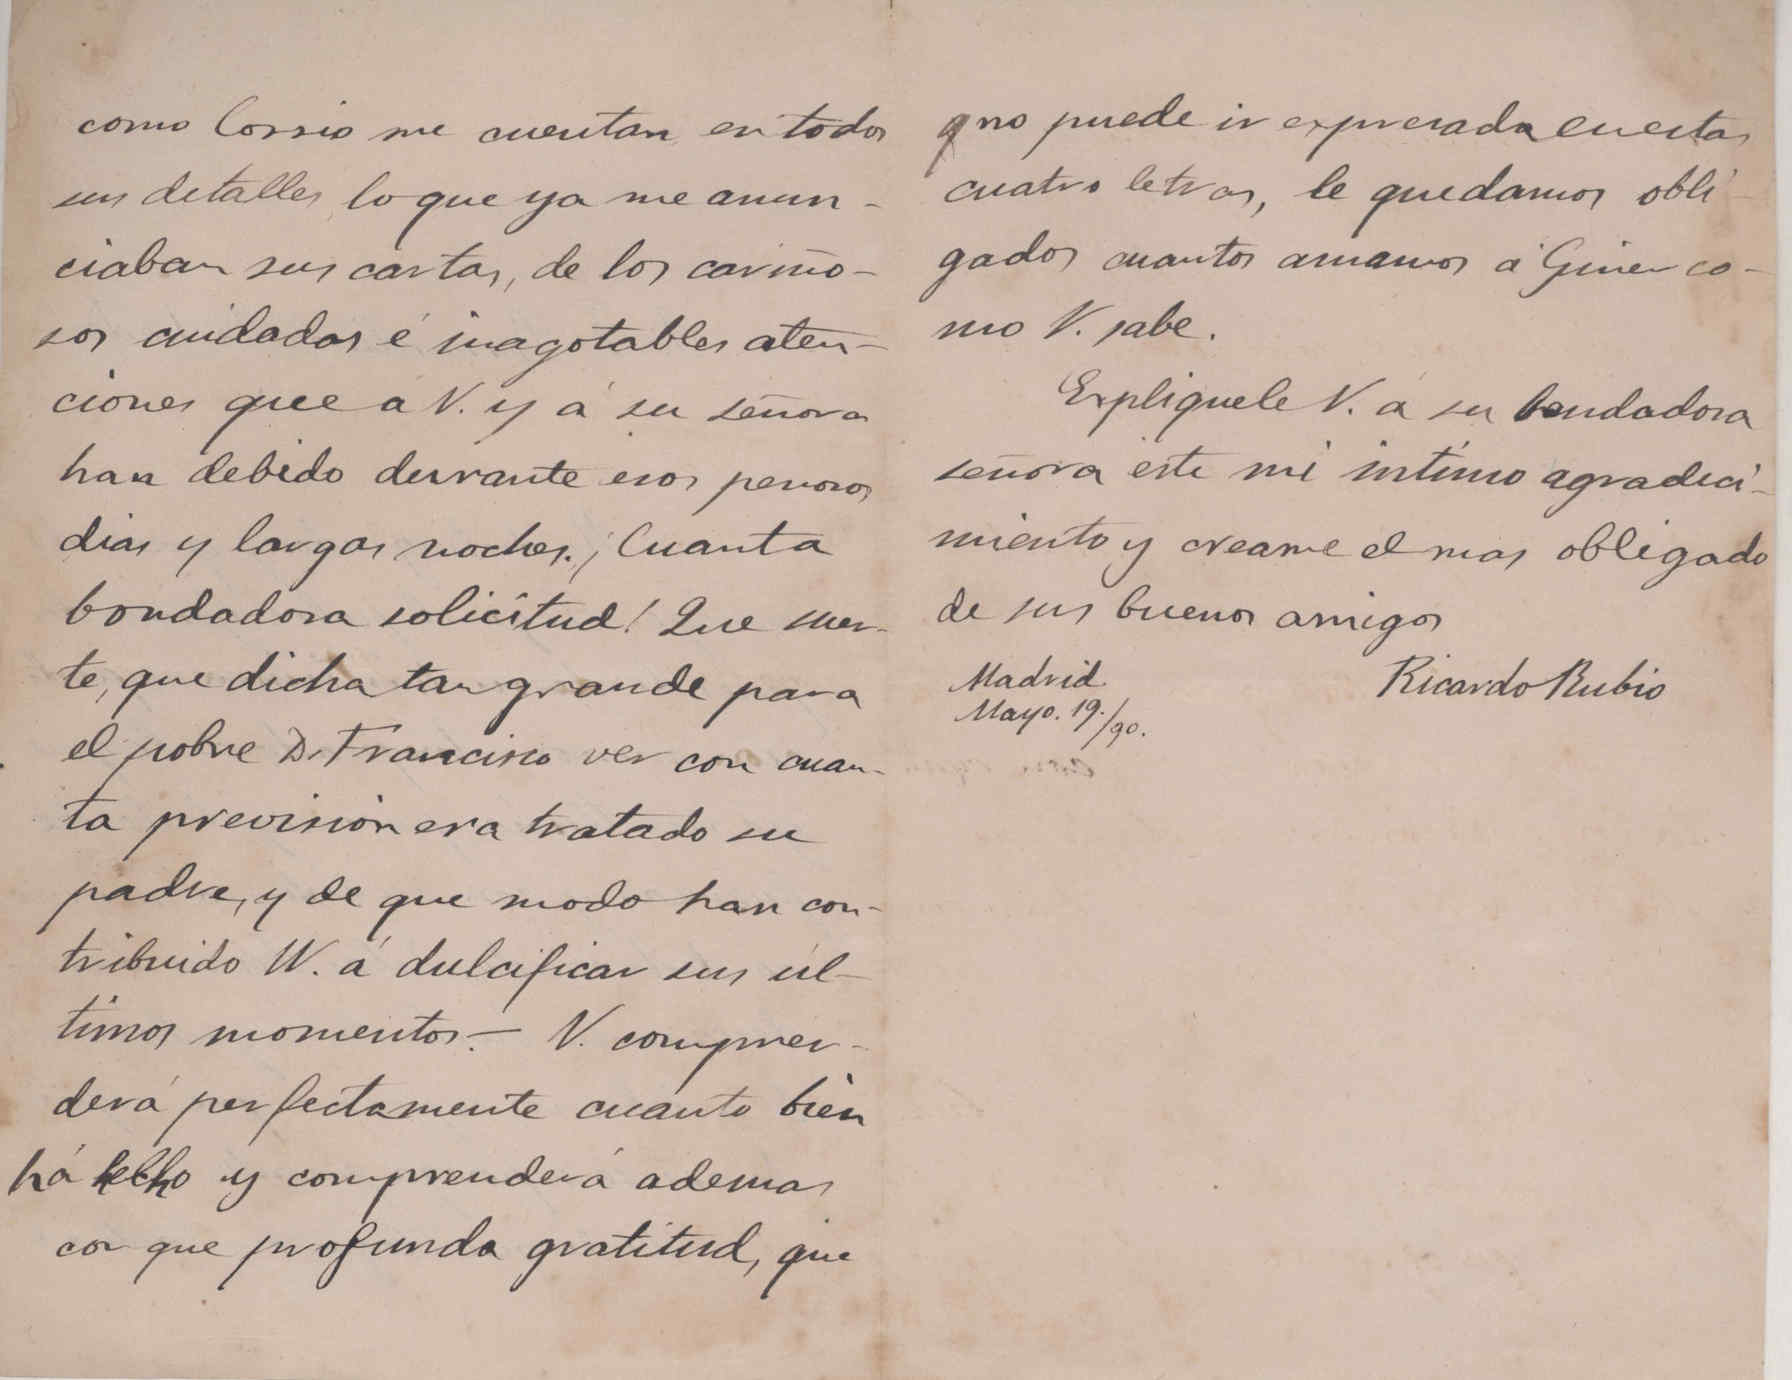 como Cossio me cuentan en todos
sus detalles lo que ya me anun-
ciaban sus cartas, de los cariño-
sos cuidados é inagotables aten-
ciones que á V. y á su señora
han debido durante esos penosos
dias y largas noches. ¡Cuanta
bondadosa solicitud! Que suer-
te, que dicha tan grande para
el pobre D. Francisco ver con cuan-
ta prevision era tratado su
padre, y de que modo han con-
tribuido VV. á dulcificar sus úl-
timos momentos.- V. compren-
derá perfectamente cuanto bien
há hecho y comprenderá ademas
con que profunda gratitud, que
q no puede ir expresada en estas
cuatro letras, le quedamos obli-
gados cuantos amamos á Giner co-
mo V. sabe.
Expliquele V. á su bondadosa
señora este mi intimo agradeci-
miento y creame el mas obligado
de sus buenos amigos
Ricardo Rubio
Madrid
Mayo. 19./90.